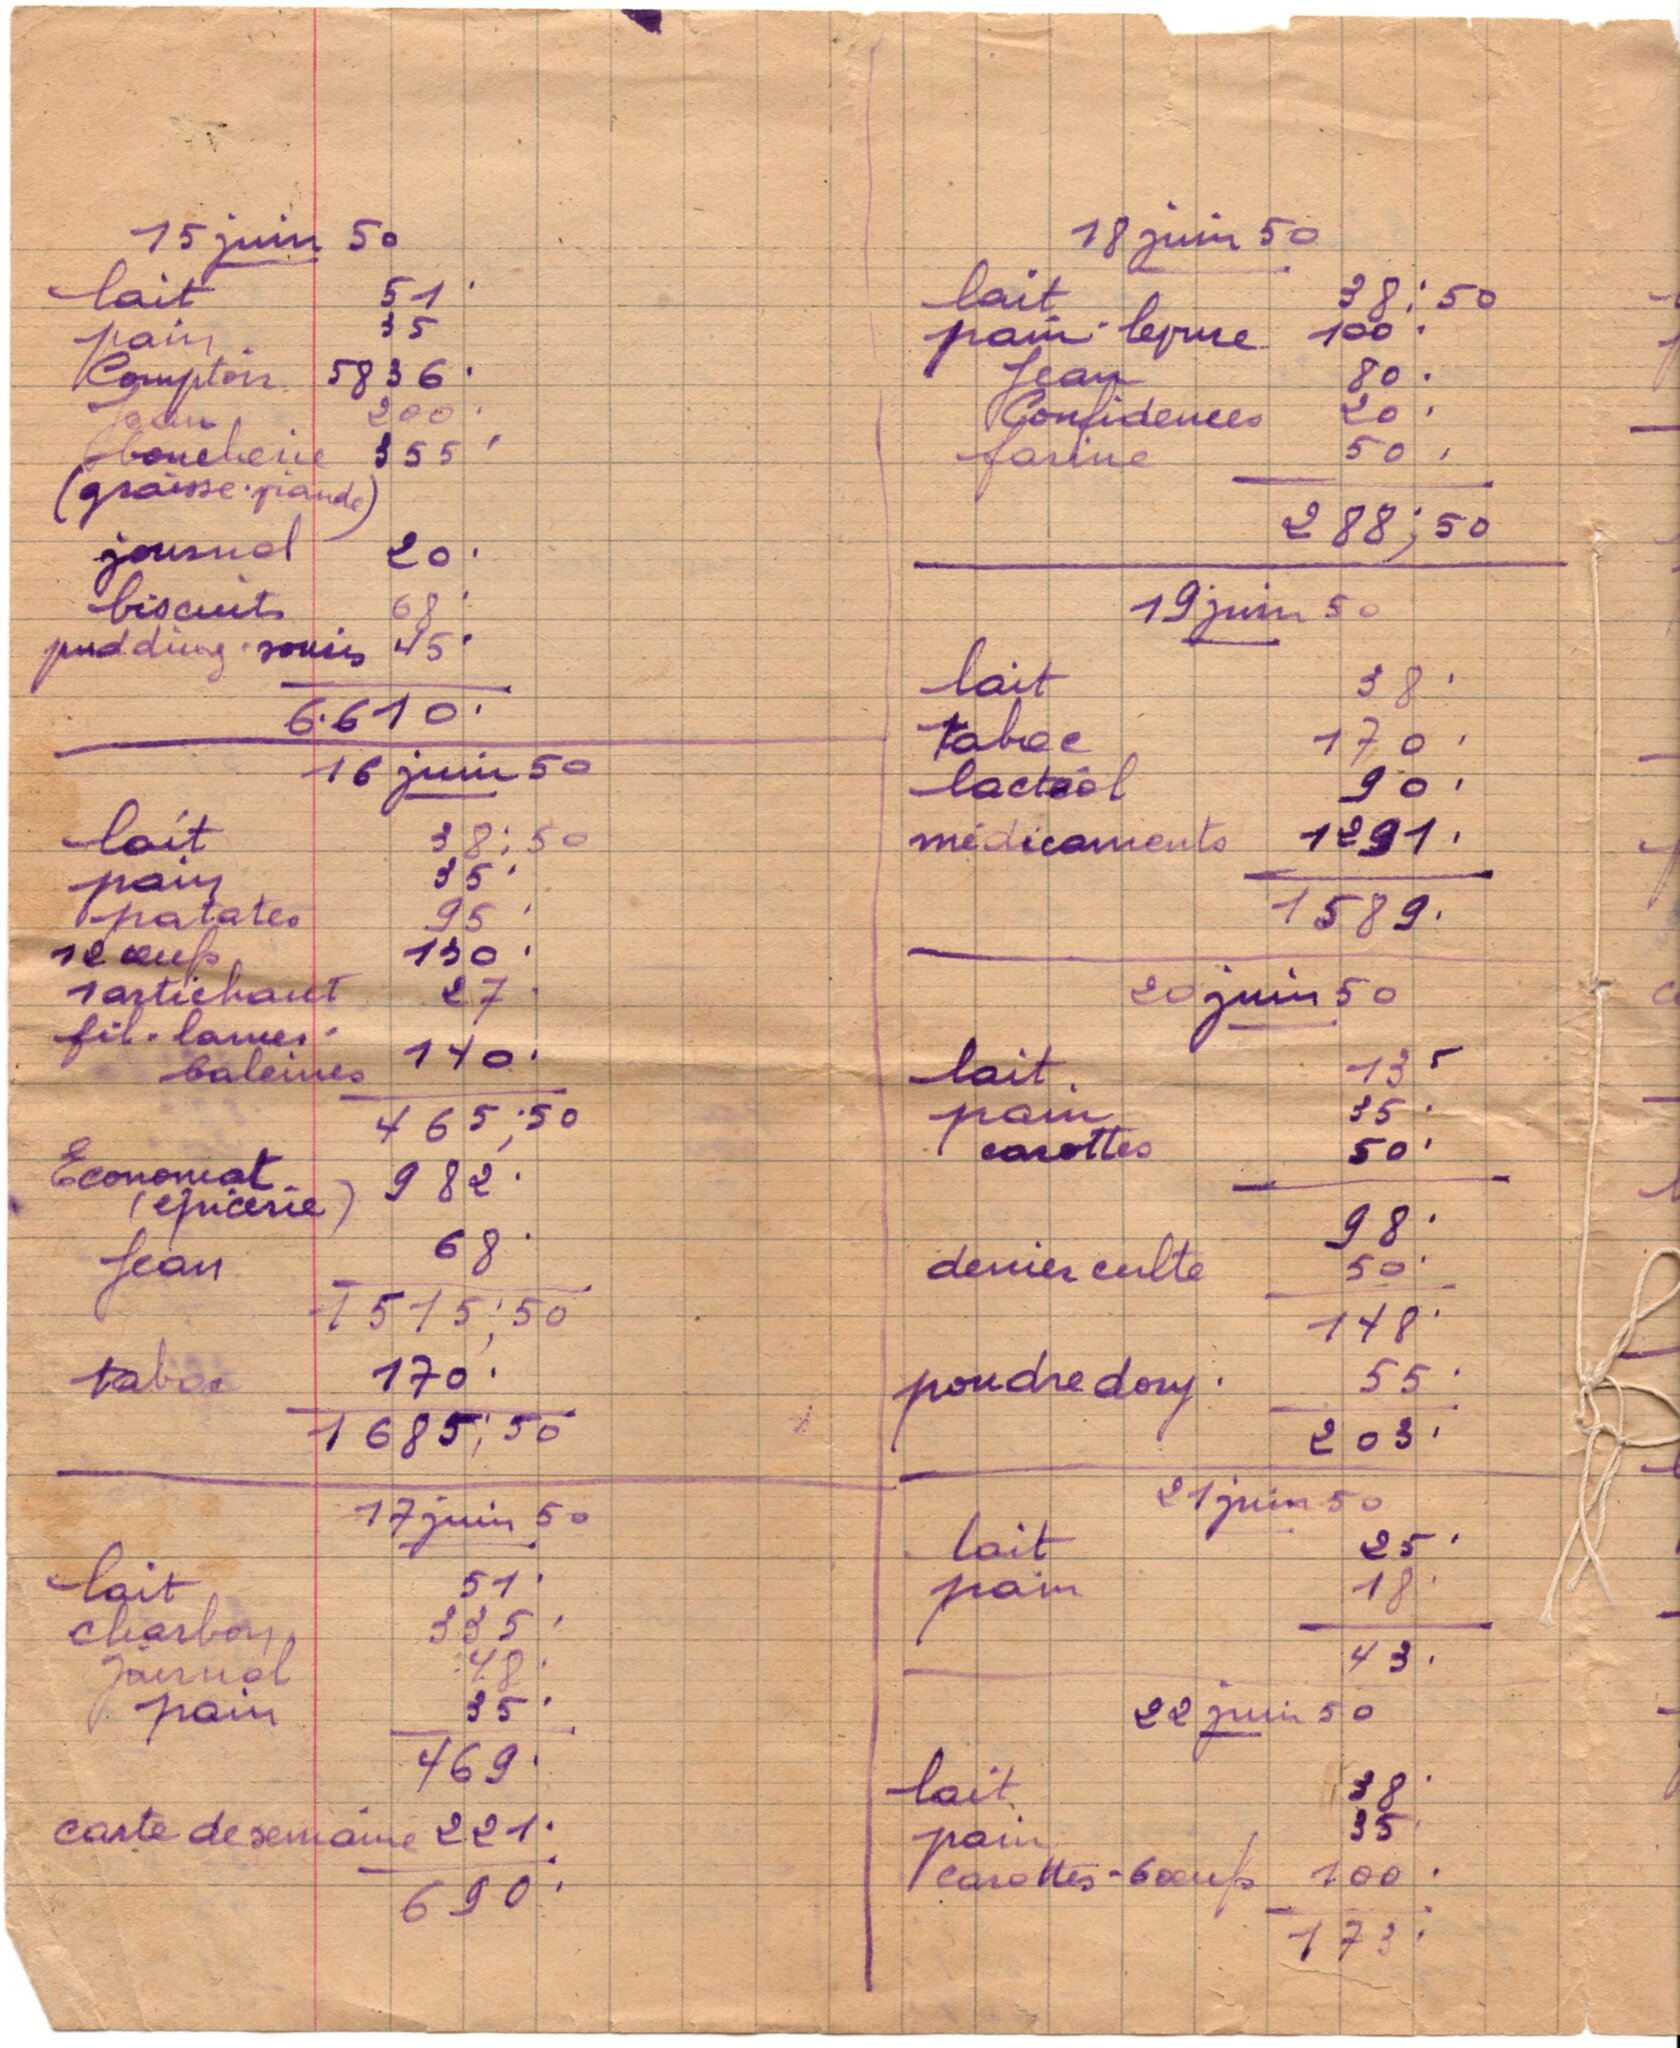 15 juin 50
lait 51.
pain 35
Comptoir 5836.
Jean 200.
boucherie 355.
(graisse. viande)
journal 20.
biscuits 68.
pudding. souris 45.
6.610.
16 juin 50
lait 38;50
pain 35.
patates 95.
12 œufs 130.
1 artichaut 27.
fil. lames.
baleines 140.
465;50
Economat 982.
(épicerie)
Jean 68.
1515;50
tabac 170.
1685;50
17 juin 50
lait 51.
charbon 335.
journal 48.
pain 35.
469.
carte de semaine 221.
690.
18 juin 50
lait 38;50
pain. levure 100.
Jean 80.
Confidences 20.
farine 50.
288;50
19 juin 50
lait 38.
tabac 170.
lactéol 90.
médicaments 1291.
1589.
20 juin 50
lait. 13
pain 35.
carottes 50.
98.
denier culte 50.
148.
poudre dory. 55.
203.
21 juin 50
lait 25.
pain 18.
43.
22 juin 50
lait 38.
pain 35.
carottes - 6 œufs 100.
173.